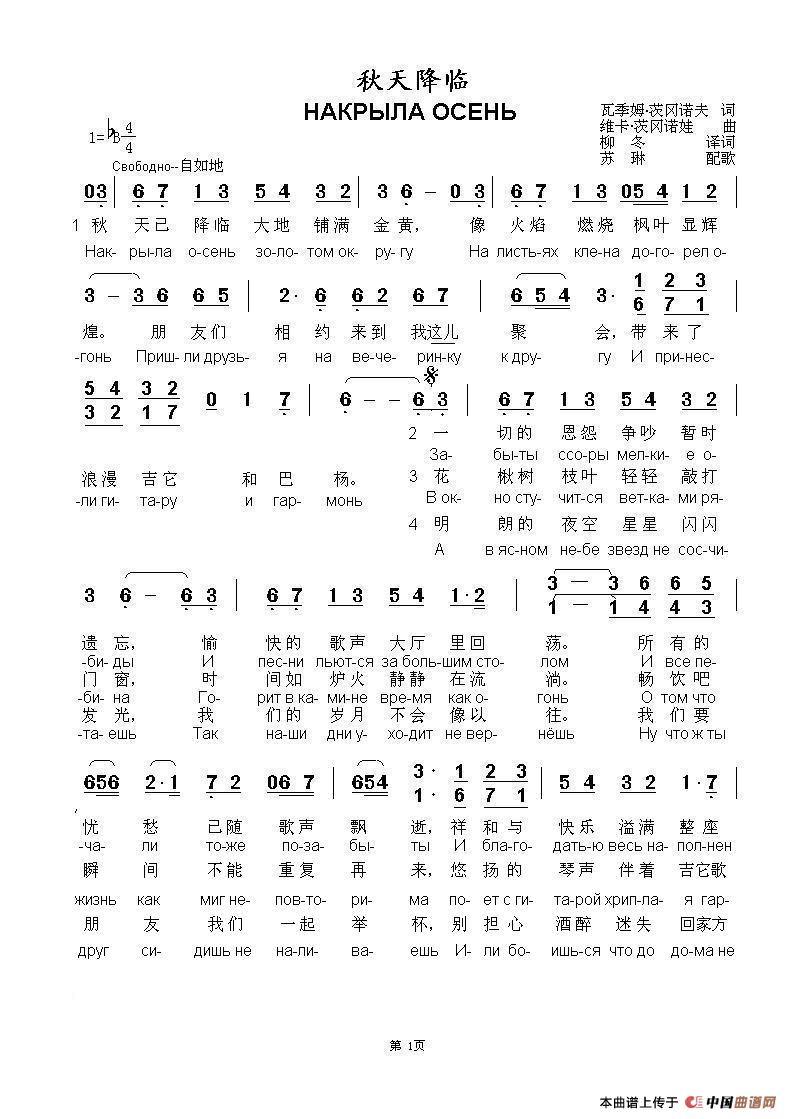 秋天降临
НАКРЫЛА ОСЕНЬ
瓦季姆·茨冈诺夫 词
维卡·茨冈诺娃 曲
柳 冬 译词
苏 琳 配歌
1=♭B 4/4
Свободно--自如地
03 | 6 7 1 3 5 4 2 4 | 3 6 - 0 3 | 6 7 1 3 054 1 3 |
1 秋 天已 降临 大地 铺满 金黄， 像 火焰 燃烧 枫叶 显辉
Нак- ры-ла о-сень зо-ло- том ок- ру- гу На листь-ях кле-на до-го- рел о-
3 - 3 6 6 5 | 2· 6 6 2 6 7 | 6 54 3· 1 2 3 |
6 7 1
煌。 朋 友们 相 约 来到 我这儿 聚 会，带 来了
-гонь Приш- ли друзь- я на ве-че- рин-ку к дру- гу И при-нес-
5 4 3 2 0 1 7 | 6 - - 6 3 | 6 7 1 3 5 4 3 2 |
3 2 1 7
2 一 切的 恩怨 争吵 暂时
За- бы-ты ссо-ры мел-ки- е о-
浪漫 吉它 和 巴 杨。 3 花 楸树 枝叶 轻轻 敲打
-ли ги- тару и гар- монь В ок- но сту- чит-ся вет-ка- ми ря-
4 明 朗的 夜空 星星 闪闪
А в яс-ном не-бе звезд не сос-чи-
3 6 - 6 3 | 6 7 1 3 5 4 1·2 | 3 - 3 6 6 5 |
1 - 1 4 4 3
遗 忘， 愉 快的 歌声 大厅 里回 荡。 所 有的
-би- ды И пес-ни льют-ся за боль- шим сто- лом И все пе-
门 窗， 时 间如 炉火 静静 在流 淌。 畅 饮吧
-би- на Го- рит в ка- ми-не вре-мя как о- гонь О том что
发 光， 我 们的 岁月 不会 像以 往。 我 们要
-та-ешь Так на-ши дни у- хо-дит не вер- нёшь Ну что ж ты
656 2·1 7 2 06 7 | 654 3· 1 2 3 | 5 4 3 2 1·7 |
1· 6 7 1
忧 愁 已随 歌声 飘 逝，祥 和与 快乐 溢满 整座
-ча- ли то-же по-за- бы- ты И бла-го- дать-ю весь на- пол-нен
瞬 间 不能 重复 再 来，悠 扬的 琴声 伴着 吉它歌
жизнь как миг не- пов-то- ри- ма по- ет с ги- та-рой хрип-ла- я гар-
朋 友 我们 一起 举 杯，别 担心 酒醉 迷失 回家方
друг си- дишь не на-ли- ва- ешь И- ли бо- ишь-ся что до до-ма не
第 1页
本曲谱上传于 中国曲谱网